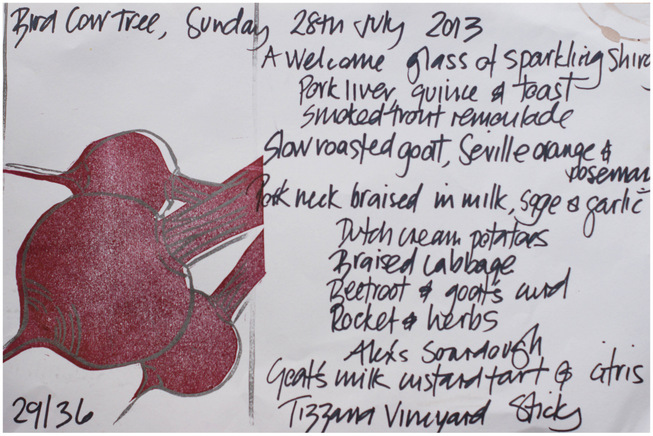 Bird Cow Tree, Sunday 28th July 2013
A Welcome glass of sparkling Shira
Pork liver, quince & toast
Smoked trout remoulade
Slow roasted goat, Seville orange &
rosemary
Pork neck braised in milk, sage & garlic
Dutch cream potatoes
Braised Cabbage
Beetroot & goat's curd
Rocket & herbs
Alex's Sourdough
Goat's milk custard tart & citris
Tizzana Vineyard Sticky
29/36